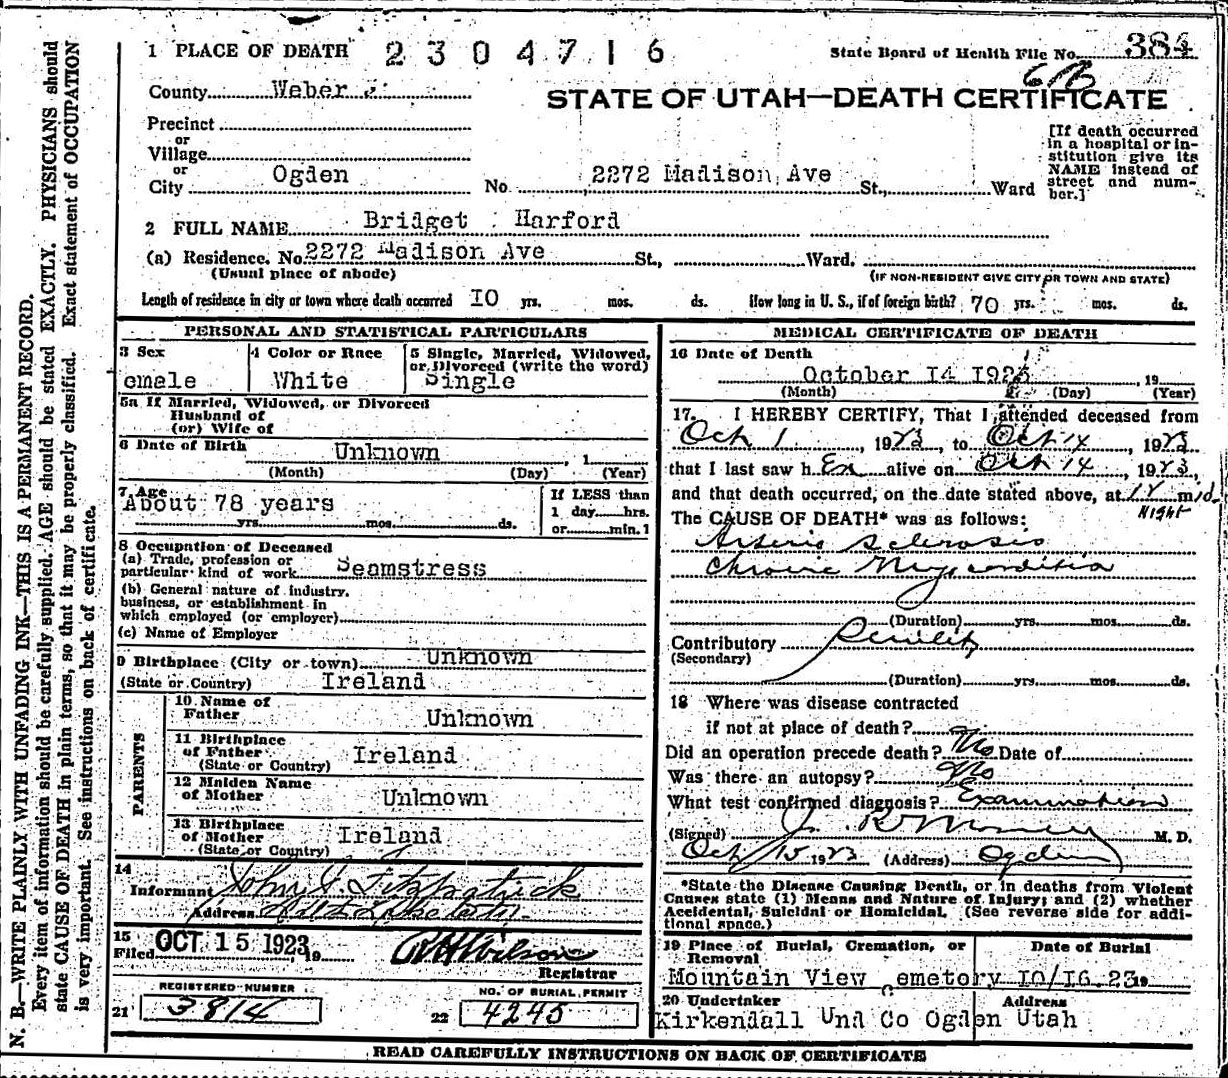 1 PLACE OF DEATH 2304716 State Board of Health File No. 384
County Weber
STATE OF UTAH—DEATH CERTIFICATE
Precinct
or
Village
or
City Ogden No. 2272 Madison Ave St., Ward
[If death occurred
in a hospital or in-
stitution give its
NAME instead of
street and num-
ber.]
2 FULL NAME Bridget Harford
(a) Residence. No. 2272 Madison Ave St., Ward.
(Usual place of abode) (IF NON-RESIDENT GIVE CITY OR TOWN AND STATE)
Length of residence in city or town where death occurred 10 yrs. mos. ds. How long in U. S., if of foreign birth? 70 yrs. mos. ds.
PERSONAL AND STATISTICAL PARTICULARS
3 Sex
emale
4 Color or Race
White
5 Single, Married, Widowed,
or Divorced (write the word)
Single
5a If Married, Widowed, or Divorced
Husband of
(or) Wife of
6 Date of Birth Unknown , 1
(Month) (Day) (Year)
7 Age
About 78 years
yrs. mos. ds.
If LESS than
1 day hrs.
or min. 1
8 Occupation of Deceased
(a) Trade, profession or
particular kind of work Seamstress
(b) General nature of industry.
business, or establishment in
which employed (or employer)
(c) Name of Employer
9 Birthplace (City or town) Unknown
(State or Country) Ireland
PARENTS
10 Name of
Father Unknown
11 Birthplace
of Father Ireland
(State or Country)
12 Maiden Name
of Mother Unknown
13 Birthplace
of Mother Ireland
(State or Country)
14
Informant John Fitzpatrick
Address
15
Filed OCT 15 1923, 19
Registrar
REGISTERED NUMBER
21 3814
NO. OF BURIAL PERMIT
22 4245
MEDICAL CERTIFICATE OF DEATH
16 Date of Death
October 14 1923 , 19
(Month) (Day) (Year)
17. I HEREBY CERTIFY, That I attended deceased from
Oct 1 1923, to Oct 14 1923
that I last saw her alive on Oct 14, 1923,
and that death occurred, on the date stated above, at 12 mid
Night
The CAUSE OF DEATH* was as follows:
Arterio Sclerosis
Chronic
(Duration) yrs. mos. ds.
Contributory Senility
(Secondary)
(Duration) yrs. mos. ds.
18 Where was disease contracted
if not at place of death?
Did an operation precede death? No Date of
Was there an autopsy? No
What test confirmed diagnosis? Examination
(Signed) M. D.
Oct 15 1923 (Address) Ogden
*State the Disease Causing Death, or in deaths from Violent
Causes state (1) Means and Nature of Injury; and (2) whether
Accidental, Suicidal or Homicidal. (See reverse side for addi-
tional space.)
19 Place of Burial, Cremation, or
Removal
Date of Burial
Mountain View Cemetory 10/16.23 19
20 Undertaker Address
Kirkendall Und Co Ogden Utah
READ CAREFULLY INSTRUCTIONS ON BACK OF CERTIFICATE
N. B.—WRITE PLAINLY WITH UNFADING INK—THIS IS A PERMANENT RECORD.
Every item of information should be carefully supplied. AGE should be stated EXACTLY. PHYSICIANS should
state CAUSE OF DEATH in plain terms, so that it may be properly classified. Exact statement of OCCUPATION
is very important. See instructions on back of certificate.